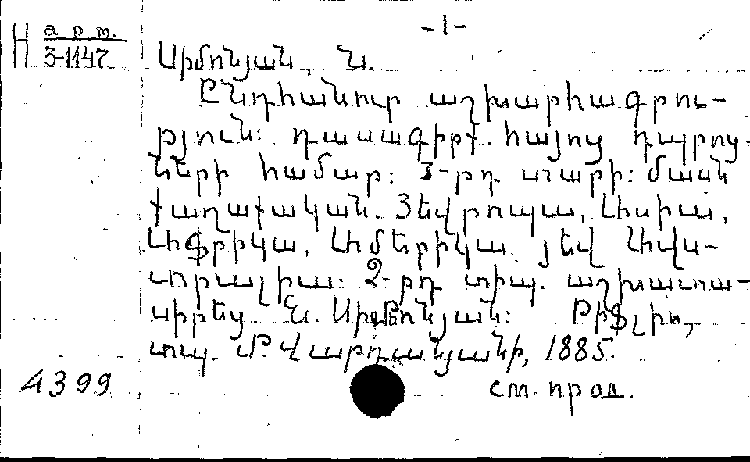 -1-
H арт.
3-1147
Սիմոնյան, Ն.
Ընդհանուր աշխարհագրու-
թյուն: դասագիրք հայոց դպրոց-
ների համար: I-րդ տարի: մասն
քաղաքական. Յեվրոպա, Ասիա,
Աֆրիկա, Ամերիկա յեվ Ավս-
տրալիա: 2-րդ տիպ. աշխատա-
սիրեց Ն. Սիմոնյան: Թիֆլիս,
տպ. Մ. Վարդանյանի, 1885.
4399
см. прод.